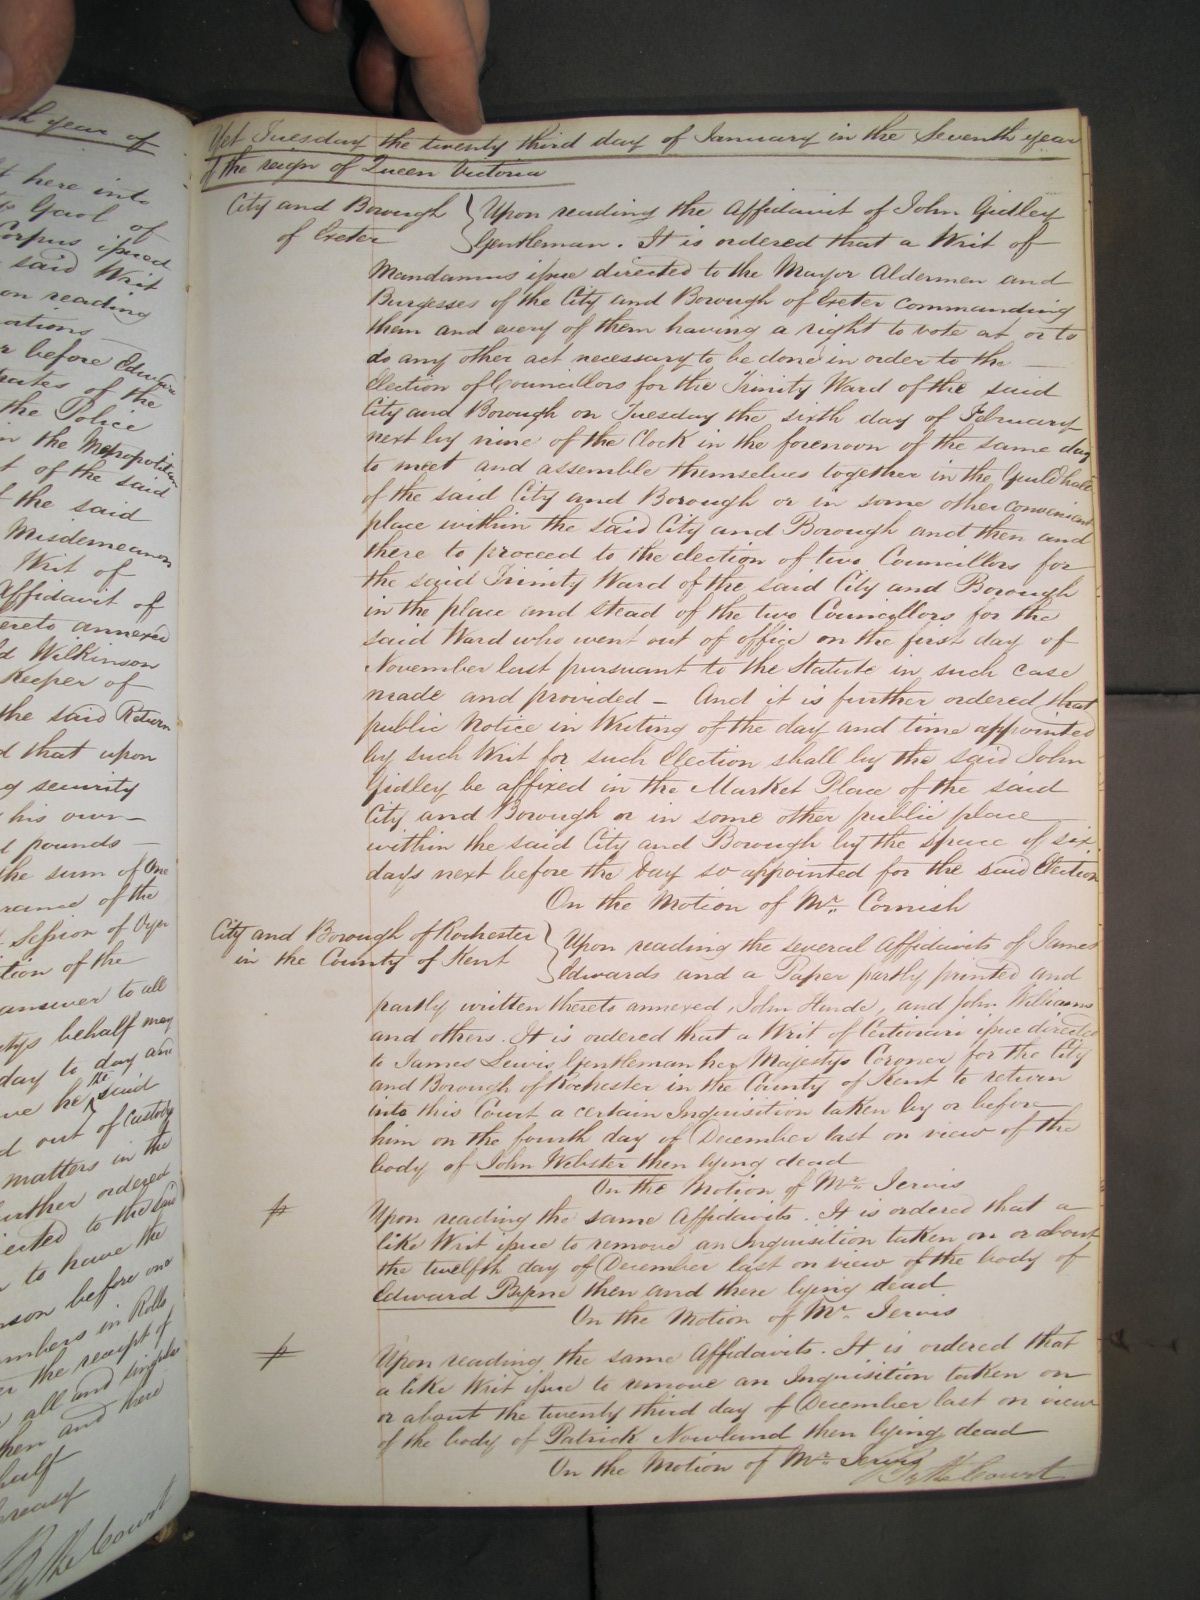 th year of
t here into
Gaol of
Corpus issued
said Writ
on reading
ations
r before Edwin
rates of the
the Police
in the Metropolitan
t of the said
f the said
Misdemeanor
Writ of
Affidavit of
ereto annexed
d Wilkinson
Keeper of
the said Return
d that upon
g security
his own
d pounds
the sum of One
rance of the
Session of Oyer
tion of the
answer to all
tys behalf may
day to day and
ve he the said
d out of Custody
matters in the
urther ordered
ected to the said
to have the
nson before one
mbers in Rolls
er the receipt of
all and singular
then and there
behalf
By the Court
Yet Tuesday the twenty third day of January in the Seventh year
of the reign of Queen Victoria
City and Borough
of Exeter
Upon reading the Affidavit of John Gidley
Gentleman. It is ordered that a Writ of
Mandamus issue directed to the Mayor Aldermen and
Burgesses of the City and Borough of Exeter commanding
them and every of them having a right to vote at or to
do any other act necessary to be done in order to the
Election of Councillors for the Trinity Ward of the said
City and Borough on Tuesday the sixth day of February
next by nine of the Clock in the forenoon of the same day
to meet and assemble themselves together in the Guildhall
of the said City and Borough or in some other convenient
place within the said City and Borough and then and
there to proceed to the election of two Councillors for
the said Trinity Ward of the said City and Borough
in the place and stead of the two Councillors for the
said Ward who went out of office on the first day of
November last pursuant to the Statute in such case
made and provided - And it is further ordered that
public Notice in Writing of the day and time appointed
by such Writ for such Election shall by the said John
Gidley be affixed in the Market Place of the said
City and Borough or in some other public place
within the said City and Borough by the space of six
days next before the Day so appointed for the said Election
On the Motion of Mr. Cornish
City and Borough of Rochester
in the County of Kent
Upon reading the several Affidavits of James
Edwards and a Paper partly printed and
partly written thereto annexed, John Hinde, and John Williams
and others. It is ordered that a Writ of Certiorari issue directed
to James Lewis Gentleman her Majestys Coroner for the City
and Borough of Rochester in the County of Kent to return
into this Court a certain Inquisition taken by or before
him on the fourth day of December last on view of the
body of John Webster then lying dead
On the Motion of Mr. Jervis
Upon reading the same Affidavits. It is ordered that a
like Writ issue to remove an Inquisition taken on or about
the twelfth day of December last on view of the body of
Edward Byrne then and there lying dead
On the Motion of Mr. Jervis
Upon reading the same Affidavits. It is ordered that
a like Writ issue to remove an Inquisition taken on
or about the twenty third day of December last on view
of the body of Patrick Nowland then lying dead
On the Motion of Mr. Jervis
By the Court